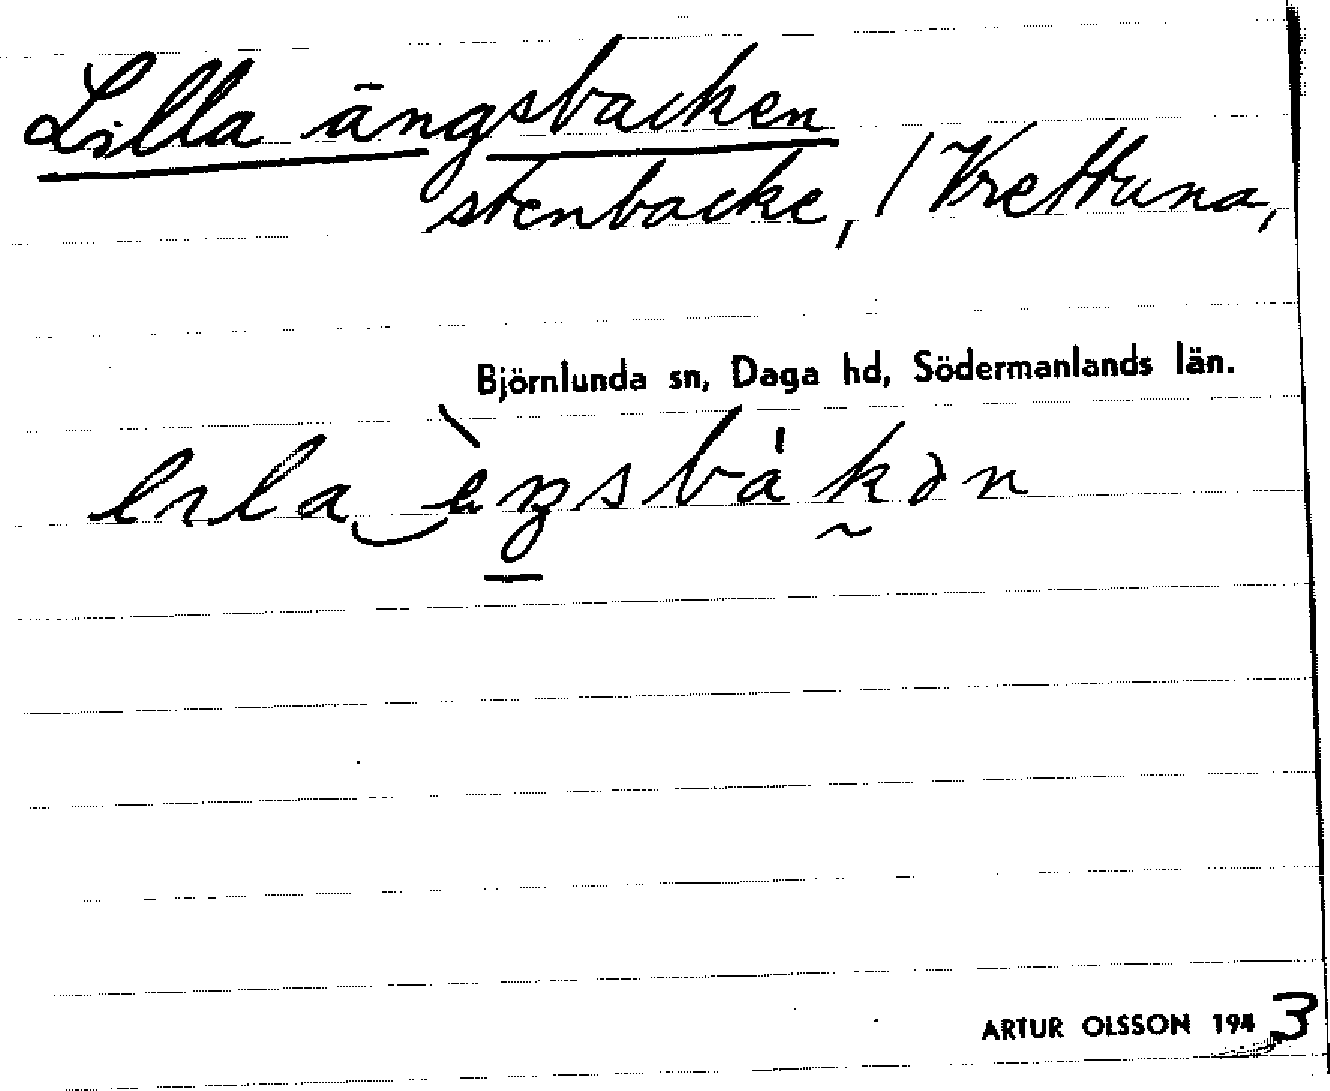 Lilla ängsbacken
stenbacke, / Vrettuna,
Björnlunda sn, Daga hd, Södermanlands län.
lıla èŋsbà'kən
ARTUR OLSSON 1943